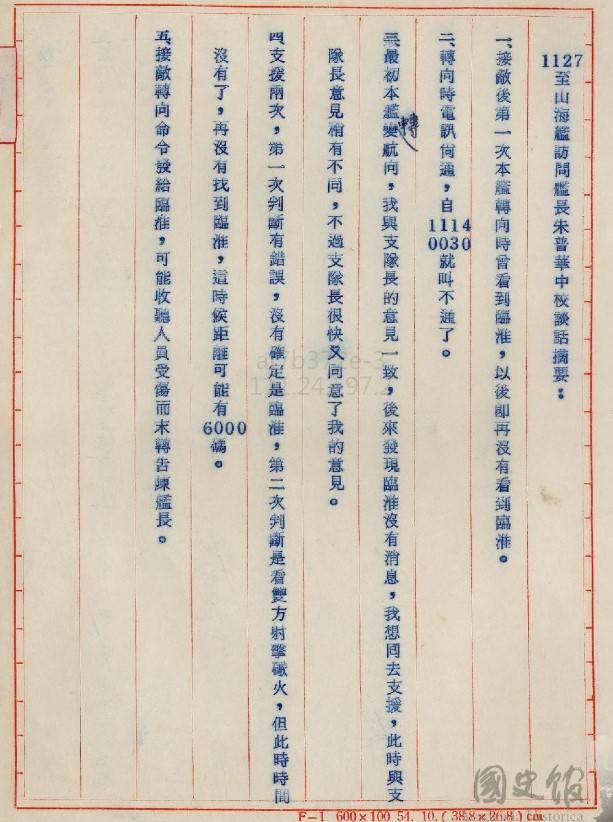 1127至山海艦訪問艦長朱普華中校談話摘要：
一、接敵後第一次本艦轉向時曾看到臨淮，以後即再沒有看到臨淮。
二、轉向時電訊尚通，自11140030就叫不通了。
三、最初本艦變航向，我與支隊長的意見一致，後來發現臨淮沒有消息，我想回去支援，此時與支
轉
隊長意見稍有不同，不過支隊長很快又同意了我的意見。
四、支援兩次，第一次判斷有錯誤，沒有確定是臨淮，第二次判斷是看雙方射擊礮火，但此時時間
沒有了，再沒有找到臨淮，這時候距離可能有6000碼。
五、接敵轉向命令發給臨淮，可能收聽人員受傷而未轉告陳艦長。
國史館
F-1 600×100 54. 10. (38.8×26.8) cm